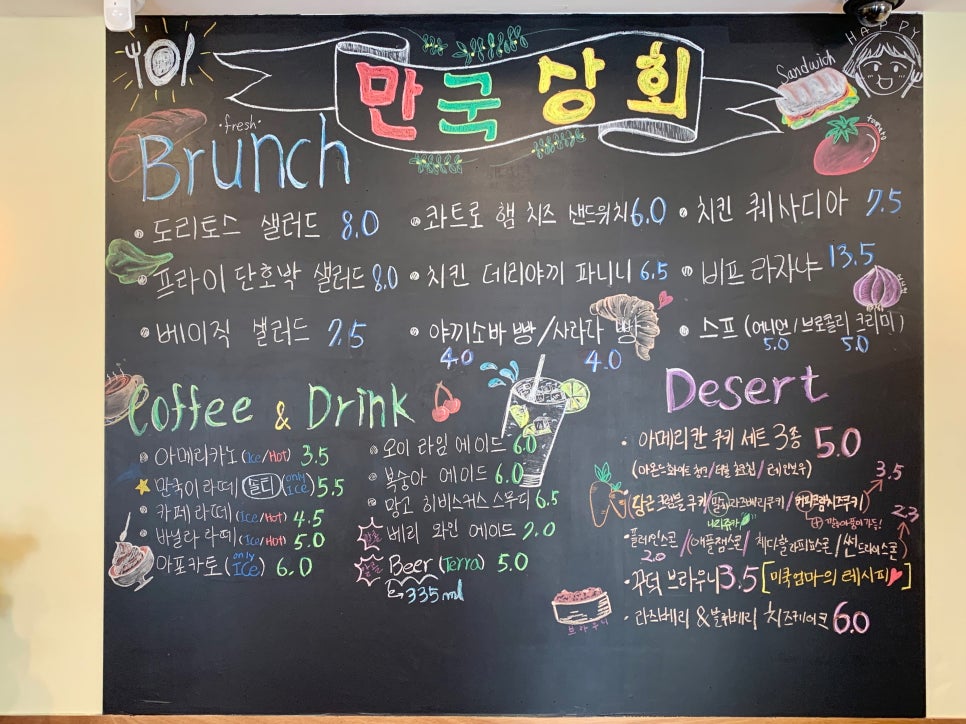 만국상회
HAPPY
Sandwich
tomato
·fresh·
Brunch
도리토스 샐러드 8.0
프라이 단호박 샐러드 8.0
베이직 샐러드 7.5
콰트로 햄 치즈 샌드위치 6.0
치킨 데리야끼 파니니 6.5
야끼소바 빵/사라다 빵
4.0 4.0
치킨 퀘사디아 7.5
비프 라자냐 13.5
스프 (어니언/브로콜리 크리미)
5.0 5.0
Coffee & Drink
아메리카노 (Ice/Hot) 3.5
만국이 라떼 (only ICE) 5.5
카페 라떼 (Ice/Hot) 4.5
바닐라 라떼 (Ice/Hot) 5.0
아포카토 (only ICE) 6.0
오이 라임 에이드 6.0
복숭아 에이드 6.0
망고 히비스커스 스무디 6.5
베리 와인 에이드 7.0
Beer (Terra) 5.0
335ml
Desert
아메리칸 쿠키 세트 3종 5.0
(아몬드화이트 청크/더블 초코칩/레인보우)
당근 크럼블 쿠키/말차라즈베리쿠키/커피크림치즈쿠키 3.5
플레인스콘/(애플잼스콘/체다할라피뇨스콘/썬드라이스콘) 2.3
2.0
꾸덕 브라우니 3.5 [미쿡엄마의 레시피♥]
브라우니
라즈베리 & 블루베리 치즈케이크 6.0